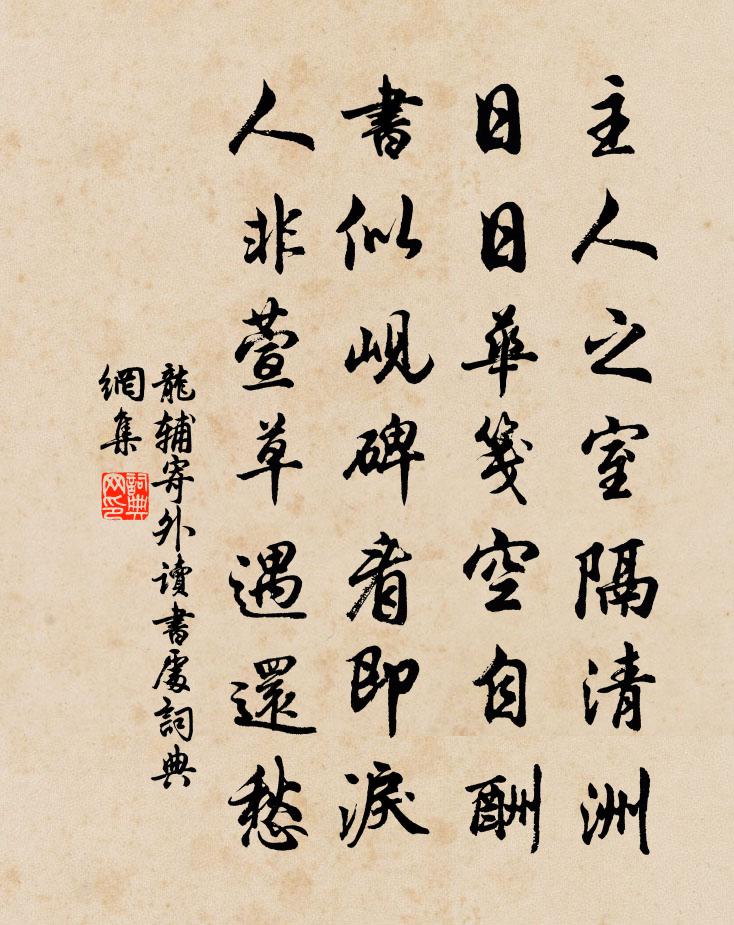 主人之室隔清洲
日日華箋空自酬
書似峴碑看即淚
人非萱草遇還愁
龍輔寄外读書處詞典
網集
詞典
网印